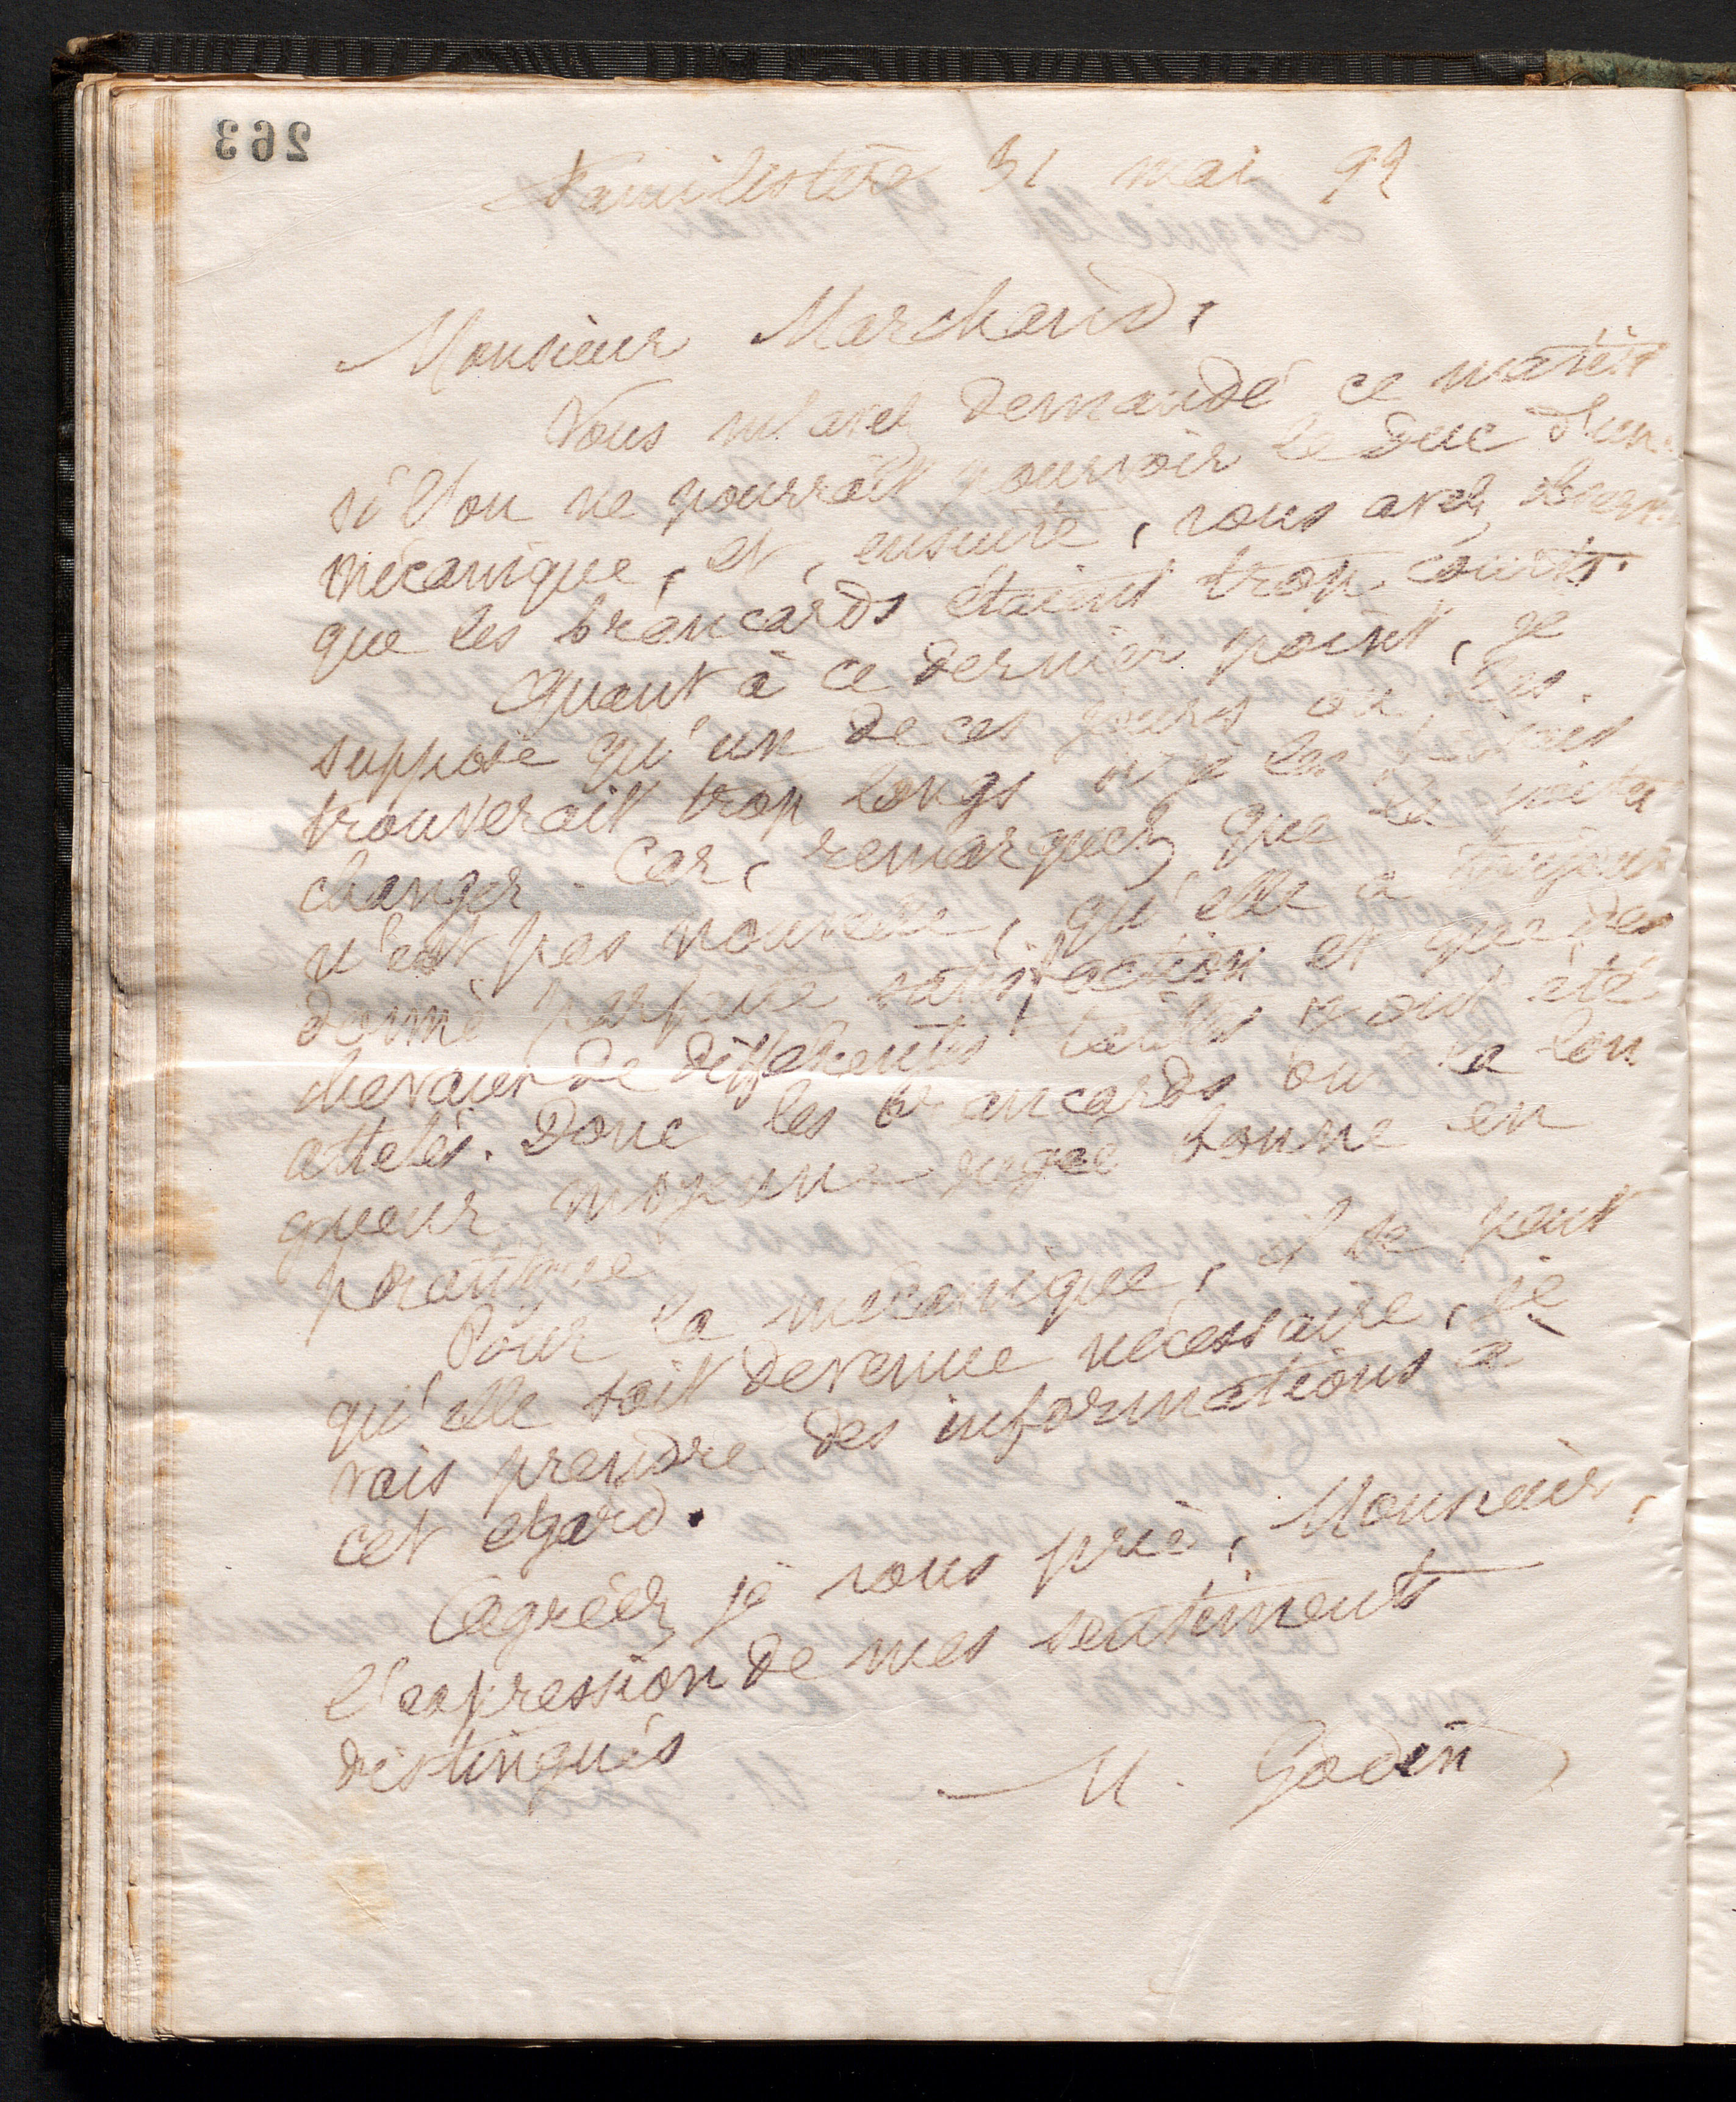 263
Familistère 31 mai 99
Monsieur Marchand,
Vous m'avez demandé ce matin
si l'on ne pourrait pourvoir le duc d'une
mécanique, et, ensuite, vous avez observé
que les brancards étaient trop courts.
Quant à ce dernier point, je
suppose qu'un de ces jours on les
trouverait trop longs si je les faisais
changer. Car, remarquez que la voiture
n'est pas nouvelle, qu'elle a toujours
donné parfaite satisfaction et que des
chevaux de différentes tailles y ont été
attelés. Donc les brancards ont la lon
gueur moyenne jugée bonne en
pratique
Pour la mécanique, il se peut
qu'elle soit devenue nécessaire, je
vais prendre des informations à
cet égard.
Agréez je vous prie, Monsieur,
l'expression de mes sentiments
distingués
M. Godin